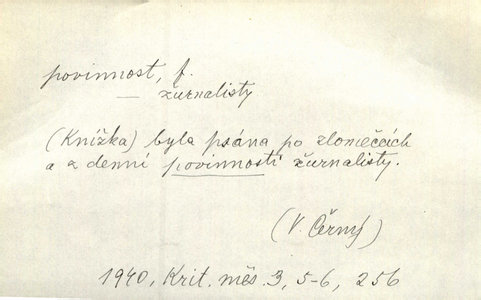 povinnost, f.
— žurnalisty
(Knížka) byla psána po zlomečcích
a z denní povinnosti žurnalisty.
(V. Černý)
1940, Krit. měs. 3, 5-6, 256